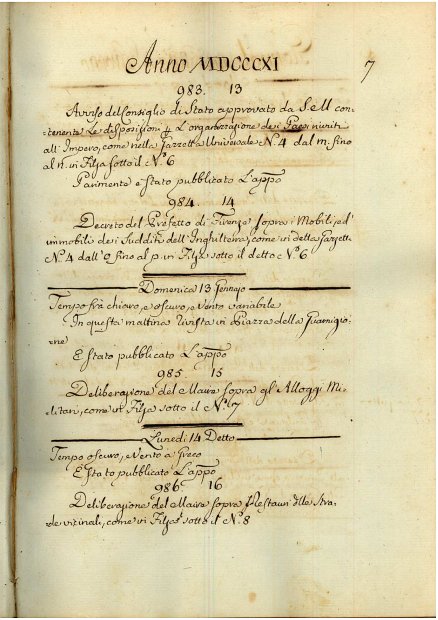 Anno MDCCCXI
7
983. 13
Avviso del Consiglio di Stato approvato da S.E.M con-
tenente Le disposizioni p L'organizzazione dei Paesi riuniti
all'Impero, come nella Gazzetta Universale N.° 4 dal m. fino
al n. in Filza sotto il N.° 6
Parimente è stato pubblicato L'appo
984. 14
Decreto del Prefetto di Firenze sopra i Mobili, ed
immobili dei Sudditi dell'Inghilterra, come in della Gazzett
N.° 4 dall'O fino al p. in Filza sotto il detto N.° 6
Domenica 13 Gennajo
Tempo frà chiaro, e oscuro, e Vento variabile
In questa mattina Rivista in Piazza della Guarnigio-
ne
E Stato pubblicato L'appo
985 15
Deliberazione del Maire sopra gl'Alloggi Mi-
litari, come in Filza sotto il N.° 7
Lunedi 14 Detto
Tempo oscuro, e Vento a Greco
E Stato pubblicato L'appo
986 16
Deliberazione del Maire sopra i Restauri delle Stra-
de vicinali, come in Filza sotto il N.° 8